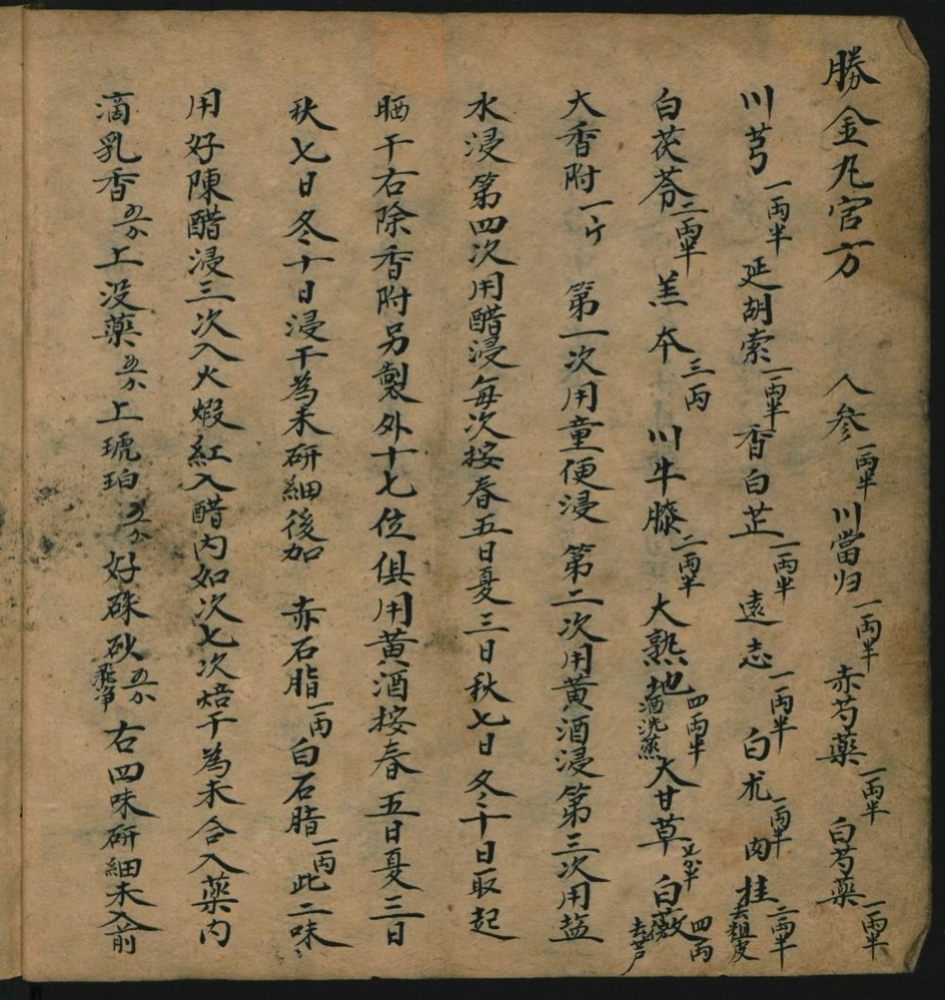 勝金丸官方　人参一両半川當归一両半赤芍藥一両半白芍藥一両半
川芎一両半延胡索一両半香白芷一両半遠志一両半白朮一両半肉桂二両半去粗皮
白茯苓二両半羔本三両川牛膝二両半大熟地四両半酒洗蒸大甘草半白薇四両去芦
大香附一斤　第一次用童便浸　第二次用黄酒浸第三次用盐
水浸第四次用醋浸每次按春五日夏三日秋七日冬十日取起
晒干右除香附另製外十七位俱用黄酒按春五日夏三日
秋七日冬十日浸干為末研細後加　赤石脂一両白石脂一両此二味
用好陳醋浸三次入火煆紅入醋内如次七次焙干為末合入藥内
滴乳香上没藥上琥珀好硃砂飛净右四味研細末入前